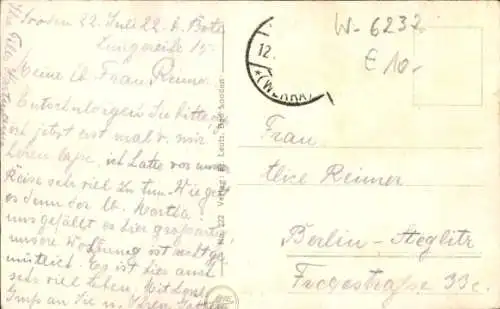 Sooden 22. Juli 22. b. Bote
Lungreihe 15.
Meine lb. Frau Reimer.
Entschuldigen Sie bitte, daß
ich jetzt erst mal v. mir
hören lasse, ich hatte vor unsrer
Reise sehr viel zu tun. Wie geht
es denn der lb. Martha?
uns gefällt es hier großartig,
unsre Wohnung ist recht ge-
mütlich. Es ist hier auch
sehr viel Leben. Mit
Gruß an Sie u. Ihren
No. 122 Verlag: Leutz, Bad Sooden
12.
*(WERRA)
W-6237
€10-
Frau
Alice Reimer
Berlin-Steglitz
33c.